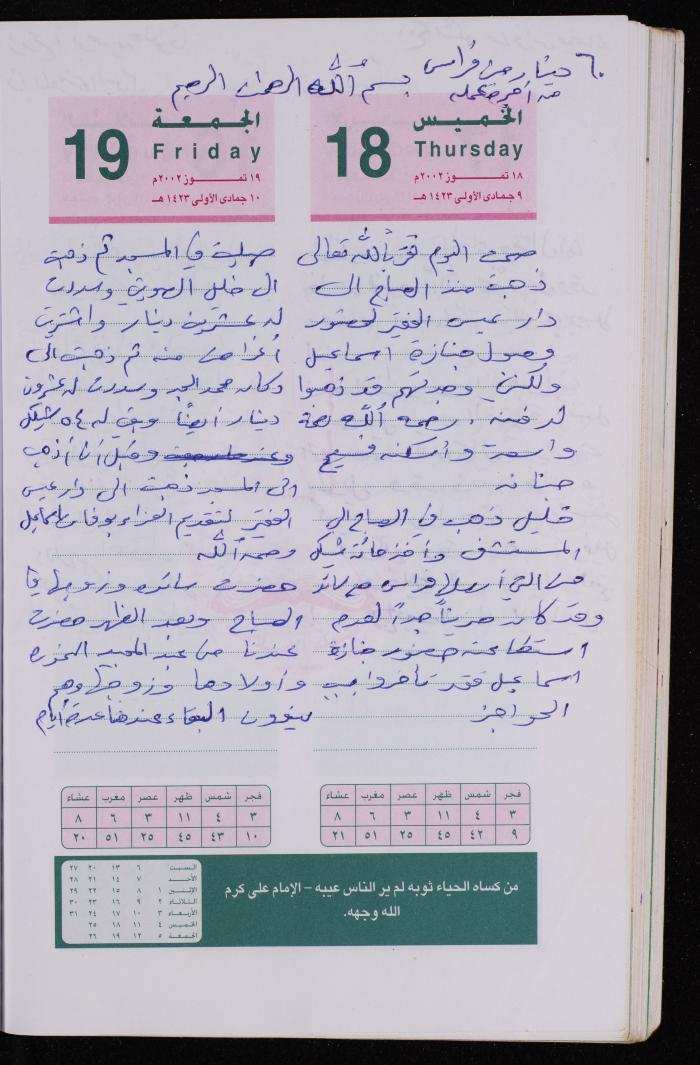 ٦٠ دينار من فراس
من أجرة عمله
بسم الله الرحمن الرحيم
الخميس
18 Thursday
١٨ تمـــوز ٢٠٠٢م
٩ جمادى الأولى ١٤٢٣ هـ
اليوم تقر بالله تعالى
ذهبت منذ الصباح الى
دار عيسى الخضر لحضور
وصول جنازة اسماعيل
ولكن وجدتهم قد ذهبوا
لدفنه . رحمه الله رحمة
واسعة وأسكنه فسيح
جنانه
خليل ذهب في الصباح الى
المستشفى وأخذ مائة شيكل
من التي أرسلها فراس مع سائد
وقد كان حزيناً جداً لعدم
استطاعته حضور جنازة
اسماعيل فقد تأخروا بسبب
الحواجز
الجمعـة
19 Friday
١٩ تمـــوز ٢٠٠٢م
١٠ جمادى الأولى ١٤٢٣ هـ
صليت في المسجد ثم ذهبت
الى خليل وسددت
له عشرين دينار واشتريت
أغراض منه ثم ذهبت الى
دكان محمد وسددت له عشرون
دينار أيضاً وبقي له ٥٤ شيكل
وقبل أن أذهب
الى المسجد ذهبت الى دار عيسى
الخضر لتقديم العزاء بوفاة اسماعيل
رحمه الله
حضرت سائده وزوجها في
الصباح وبعد الظهر حضرت
عندنا من عبد المجيد
وأولادها وزوجها وهم
ينوون البقاء عندها عدة أيام
فجر شمس ظهر عصر مغرب عشاء
٣ ٤ ١١ ٣ ٦ ٨
٩ ٤٢ ٤٥ ٢٥ ٥١ ٢١
فجر شمس ظهر عصر مغرب عشاء
٣ ٤ ١١ ٣ ٦ ٨
١٠ ٤٣ ٤٥ ٢٥ ٥١ ٢٠
من كساه الحياء ثوبه لم ير الناس عيبه – الإمام على كرم
الله وجهه.
السبت ٦ ١٣ ٢٠ ٢٧
الأحد ٧ ١٤ ٢١ ٢٨
الإثنين ١ ٨ ١٥ ٢٢ ٢٩
الثلاثاء ٢ ٩ ١٦ ٢٣ ٣٠
الأربعاء ٣ ١٠ ١٧ ٢٤ ٣١
الخميس ٤ ١١ ١٨ ٢٥
الجمعة ٥ ١٢ ١٩ ٢٦